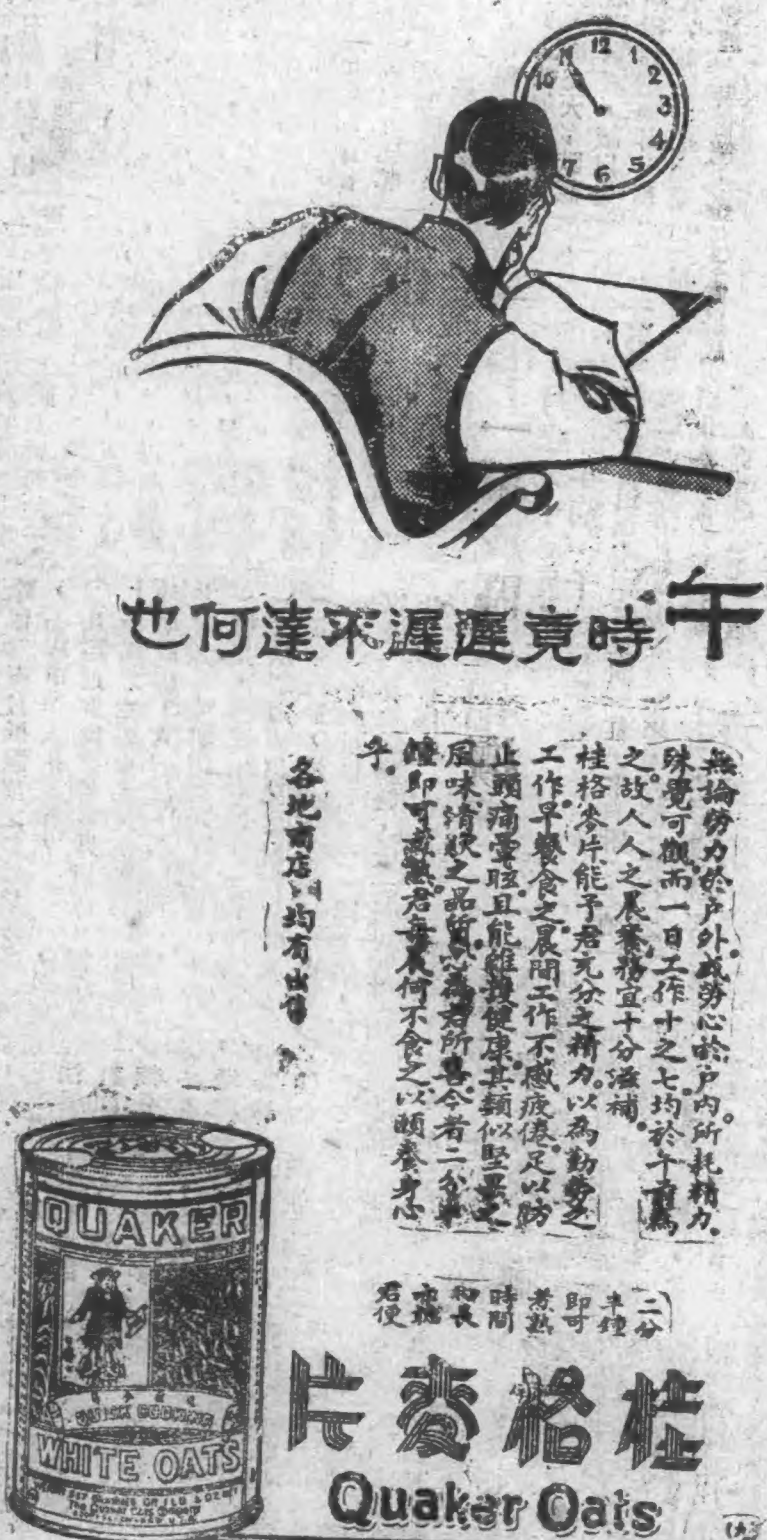 12
1
2
3
4
5
6
7
10
11
午時竟遲遲不達何也
無論勞力於戶外或勞心於戶內所耗精力。
殊覺可觀而一日工作十之七均於午前為
之故人人之晨餐務宜十分滋補。
桂格麥片能予君充分之精力以為勤勞之
工作早餐食之晨間工作不感疲倦足以防
止頭痛暈眩且能維護健康其類似堅果之
風味清 之品質 為君所喜今者二分半
鐘即可煮熟君每晨何不食之以頤養身心
乎。
各地商店 均有出售
二分
半鐘
即可
煮熟
時間
君便
桂格麥片
Quaker Oats
QUAKER
QUICK COOKING
WHITE OATS
The Quaker Oats Company